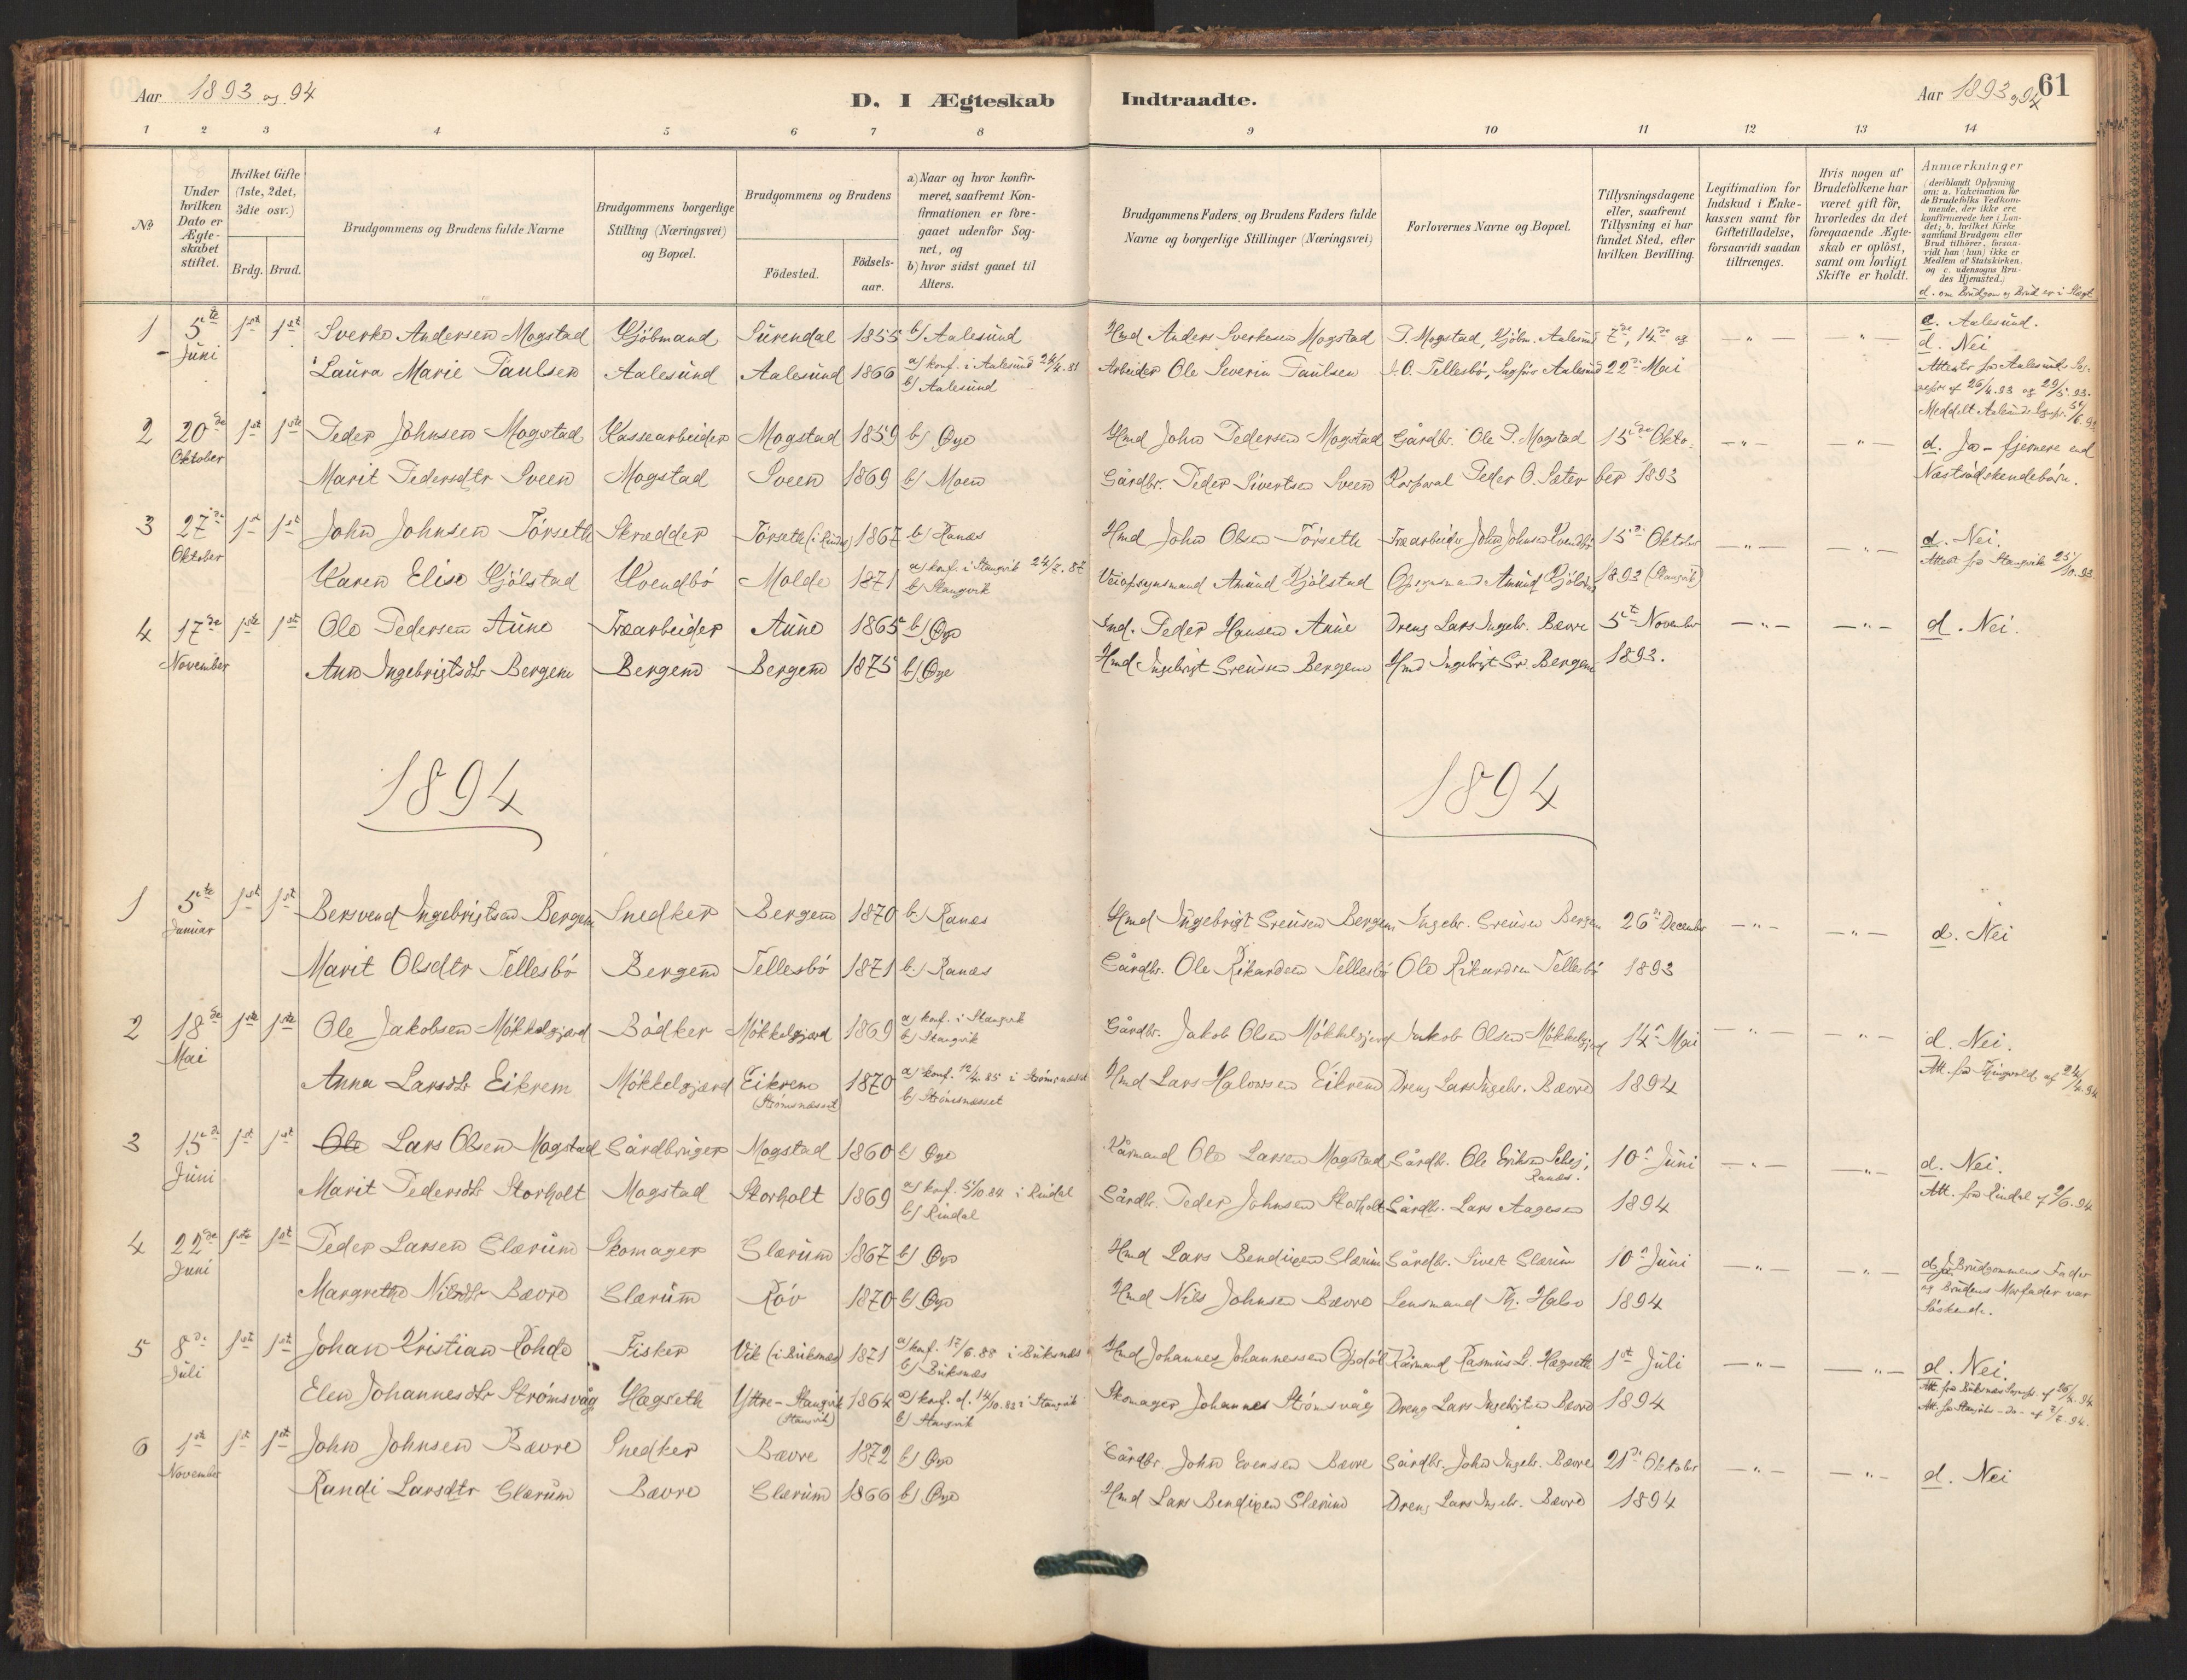 Aar 1893 og 94
D. I Ægteskab Indtraadte.
Aar 1893 og 94
61
1 2 3 4 5 6 7 8 9 10 11 12 13 14
No
Under hvilken Dato er Ægteskabet stiftet.
Hvilket Gifte (1ste, 2det, 3die osv.)
Brdg. Brud.
Brudgommens og Brudens fulde Navne
Brudgommens borgerlige Stilling (Næringsvei) og Bopæl.
Brudgommens og Brudens
Födested.
Födsels-aar.
a) Naar og hvor konfirmeret, saafremt Konfirmationen er foregaaet udenfor Sognet, og
b) hvor sidst gaaet til Alters.
Brudgommens Faders og Brudens Faders fulde Navne og borgerlige Stillinger (Næringsvei)
Forlovernes Navne og Bopæl.
Tillysningsdagene eller, saafremt Tillysning ei har fundet Sted, efter hvilken Bevilling.
Legitimation for Indskud i Enkekassen samt for Giftetilladelse, forsaavidt saadan tiltrænges.
Hvis nogen af Brudefolkene har været gift för, hvorledes da det foregaaende Ægteskab er oplöst, samt om lovligt Skifte er holdt.
Anmærkninger
(deriblandt Oplysning om: a. Vakcination for de Brudefolks Vedkommende, der ikke ere konfirmerede her i Landet; b. hvilket Kirkesamfund Brudgom eller Brud tilhörer, forsaavidt han (hun) ikke er Medlem af Statskirken, og c. udensogns Brudes Hjemsted.)
d. om Brudgom og Brud er i Slægt
1 5te Juni 1st 1st Sverke Andersen Mogstad Kjöbmand Surendal 1855 b) Aalesund Hmd Anders Sverkesen Mogstad P. Mogstad, Kjöbm. Aalesund 7de, 14de og — " — — " — c. Aalesund.
d. Nei
Laura Marie Paulsen Aalesund Aalesund 1866 a) konf. i Aalesund 24/4.81 b) Aalesund Arbeider Ole Severin Paulsen J. O. Tellesbö, Sagför. Aalesund 22de Mai
Attester fra Aalesunds
af 26/4.93 og 29/5.93.
Meddelt Aalesunds
2 20de Oktober 1st 1ste Peder Johnsen Mogstad Kassearbeider Mogstad 1859 b) Øye Hmd John Pedersen Mogstad Gårdbr. Ole P. Mogstad 15de Okto- — " — — " — d. Ja - fjernere end
Marit Pedersdtr Sveen Mogstad Sveen 1869 b) Moen Gårdbr. Peder Sivertsen Sveen Korporal Peder O. Sæter ber 1893 Næstsödskendebörn.
3 27de Oktober 1st 1st John Johnsen Törseth Skrædder Törseth (i Rindal) 1867 b) Ranæs Hmd John Olsen Törseth Træarbeider John Johnsen Kvendbö 15de Oktober — " — — " — d. Nei.
Karen Elise Kjölstad Kvendbö Molde 1871 a) konf. i Stangvik 24/7.87 b) Stangvik Veiopsynsmand Amund Kjölstad Opsynsmand Amund Kjölstad 1893 (Stangvik) Attest fra Stangvik 25/10.93.
4 17de November 1ste 1st Ole Pedersen Aune Træarbeider Aune 1865 b) Øye Ind. Peder Hansen Aune Dreng Lars Ingebr. Bævre 5te November — " — — " — d. Nei.
Ane Ingebrigtsdtr Bergem Bergem Bergem 1875 b) Øye Hmd Ingebrigt Sreusen Bergem Hmd Ingebrigt Sr. Bergem 1893.
1894 1894
1 5te Januar 1st 1st Bersvend Ingebrigtsen Bergem Snedker Bergem 1870 b.) Ranæs Hmd Ingebrigt Sreusen Bergem Ingebr. Sreusen Bergem 26de December — " — — " — d. Nei
Marit Olsdtr Tellesbö Bergem Tellesbö 1871 b.) Ranæs Gårdbr. Ole Rikardsen Tellesbö Ole Rikardsen Tellesbö 1893
2 18de Mai 1ste 1ste Ole Jakobsen Mökkelgjærd Bödker Mökkelgjærd 1869 a) konf. i Stangvik b) Stangvik Gårdbr. Jakob Olsen Mökkelgjerd Jakob Olsen Mökkelgjerd 14de Mai — " — — " — d. Nei.
Anna Larsdtr Eikrem Mökkelgjærd Eikrem (Strömsnæsset) 1870 a) konf. 12/4.85 i Strömsnæsset b) Strömsnæsset Hmd Lars Halvorsen Eikrem Dreng Lars Ingebr. Bævre 1894 Att. fra Tingvold af 24/4.94
3 15de Juni 1st 1st Ole Lars Olsen Mogstad Gårdbruger Mogstad 1860 b) Øye Kårmand Ole Larsen Mogstad Gårdbr. Ole Eriksen Schej, Ranæs. 10de Juni — " — — " — d. Nei.
Marit Pedersdtr Storholt Mogstad Storholt 1869 a) konf. 5/10.84 i Rindal b) Rindal Gårdbr. Peder Johnsen Storholt Gårdbr. Lars Aagesen 1894 Att. fra Rindal af 9/6.94
4 22de Juni 1ste 1st Peder Larsen Glærum Skomager Glærum 1867 b) Øye Hmd Lars Bendixen Glærum Gårdbr. Sivert Glærum 10de Juni — " — — " — d. Ja Brudgommens Fader
Margrethe Nilsdtr Bævre Glærum Röv 1870 b) Øye Hmd Nils Johnsen Bævre Lensmand Th. Halse 1894 og Brudens Morfader var
Söskende.
5 8de Juli 1ste 1st Johan Kristian Rohde Fisker Vik (i Buksnæs) 1871 a) konf. 17/6.88 i Buksnæs b) Buksnæs Hmd Johannes Johannessen Opdöl Kårmand Rasmus L. Hægseth 1ste Juli — " — — " — d. Nei.
Elen Johannesdtr Strömsvåg Hægseth Yttre-Stangvik (Stangvik) 1864 a) konf. d. 14/10.83 i Stangvik b) Stangvik Skomager Johannes Strömsvåg Dreng Lars Ingebrigtsen Bævre 1894 Att. fra Buksnæs Sognepr. af 26/4.94
Att. fra Stangvik - do - af 7/7.94.
6 1ste November 1st 1st John Johnsen Bævre Snedker Bævre 1872 b) Øye Gårdbr. John Evensen Bævre Gårdbr. John Ingebr. Bævre 21de Oktober — " — — " — d. Nei
Randi Larsdtr Glærum Bævre Glærum 1866 b) Øye Hmd Lars Bendixen Glærum Dreng Lars Ingebr. Bævre 1894